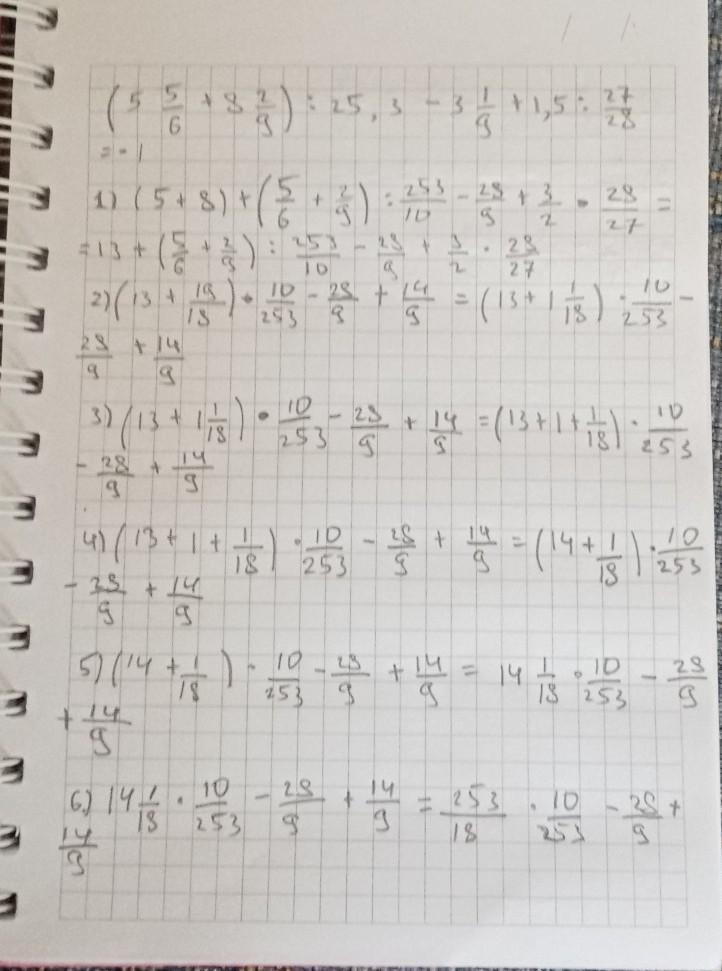 (5 5/6 + 8 2/9) : 25,3 - 3 1/9 + 1,5 : 27/28
= -1
1) (5 + 8) + (5/6 + 2/9) : 253/10 - 28/9 + 3/2 · 28/27 =
= 13 + (5/6 + 2/9) : 253/10 - 28/9 + 3/2 · 28/27
2) (13 + 19/18) · 10/253 - 28/9 + 14/9 = (13 + 1 1/18) · 10/253 -
28/9 + 14/9
3) (13 + 1 1/18) · 10/253 - 28/9 + 14/9 = (13 + 1 + 1/18) · 10/253
- 28/9 + 14/9
4) (13 + 1 + 1/18) · 10/253 - 28/9 + 14/9 = (14 + 1/18) · 10/253
- 28/9 + 14/9
5) (14 + 1/18) · 10/253 - 28/9 + 14/9 = 14 1/18 · 10/253 - 28/9
+ 14/9
6) 14 1/18 · 10/253 - 28/9 + 14/9 = 253/18 · 10/253 - 28/9 +
14/9